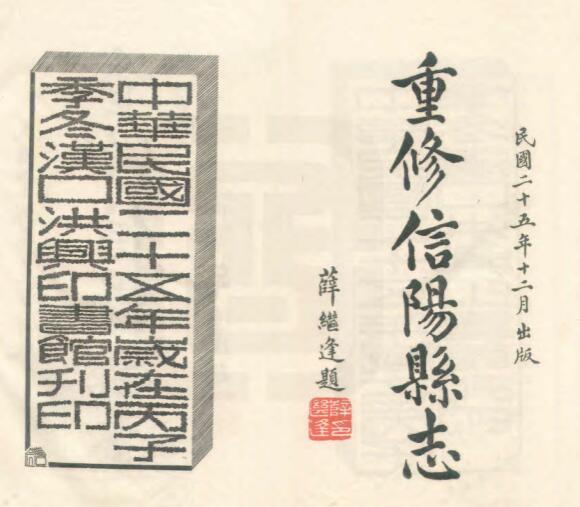 民國二十五年十二月出版
重修信陽縣志
薛繼逢題
中華民國二十五年歲在丙子
季冬漢口洪興印書館刊印